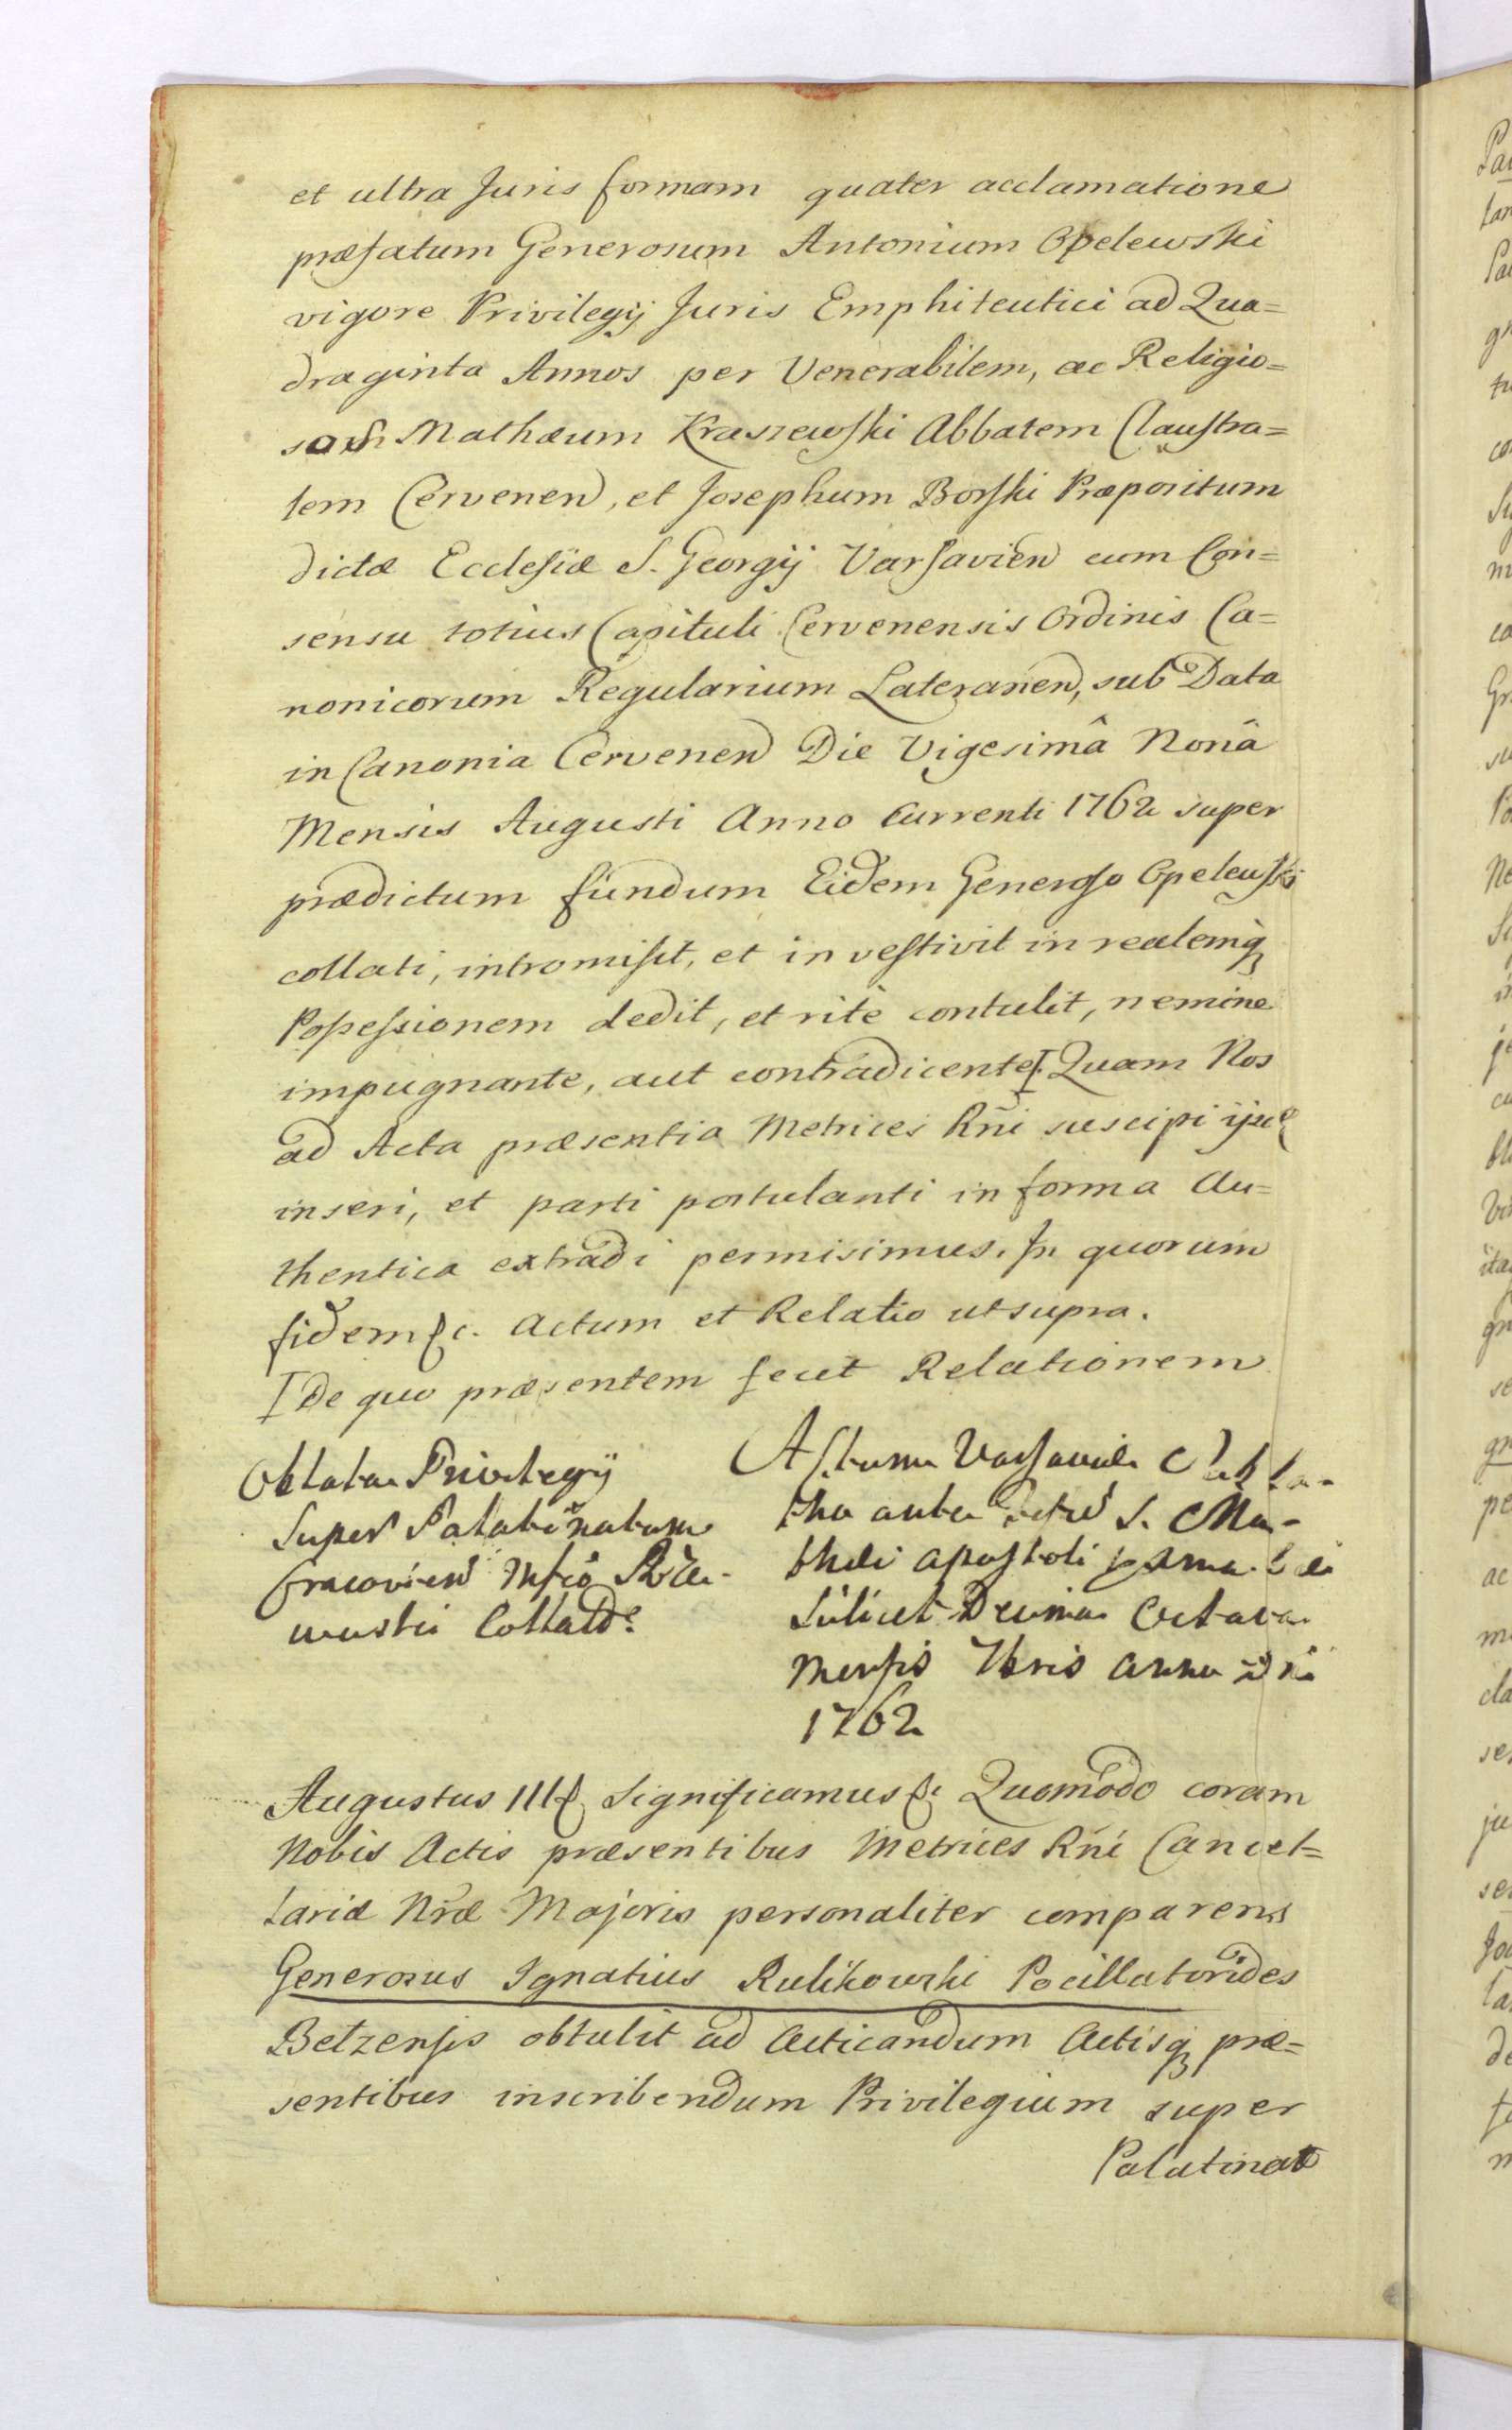 et ultra Juris formam quater acclamatione
præfatum Generosum Antonium Opelewski
vigore Privilegij Juris Emphiteutici ad Qua=
draginta Annos per Venerabilem, ac Religio=
sos Mathæum Kraszewski Abbatem Claustra=
lem Cervenen, et Josephum Borski Præpositum
dictæ Ecclesiæ S. Georgij Varsavien cum Con=
sensu totius Capituli Cervenensis Ordinis Ca=
nonicorum Regularium Lateranen, sub Data
in Canonia Cervenen Die Vigesimâ Nonâ
Mensis Augusti Anno Currenti 1762 super
prædictum fundum Eidem Generoso Opelewski
collati, intromisit, et investivit in realemq
Possessionem dedit, et ritè contulit, nemine
impugnante, aut contradicente I. Quam Nos
ad Acta præsentia Metrices Rñi suscipi ijsq
inseri, et parti postulanti in forma Au=
thentica extradi permisimus. In quorum
fidem &c. Actum et Relatio ut supra.
I De quo præsentem fecit Relationem
Oblata Privilegij
super Palatinatum
Cracovien Mfco Rze-
wuski Collati
Actum Varsaviæ Sabba-
tho ante Festũ S. Ma-
thæi Apostoli
scilicet Decima Octava
Mensis 7bris Anno Dni
1762
Augustus III & Significamus &c Quomodo coram
Nobis Actis præsentibus Metrices Rñi Cancel=
lariæ Nræ Majoris personaliter comparens
Generosus Ignatius Rulikowski Pocillatorides
Belzensis obtulit ad Acticandum Actisq præ=
sentibus inscribendum Privilegium super
Palatinat